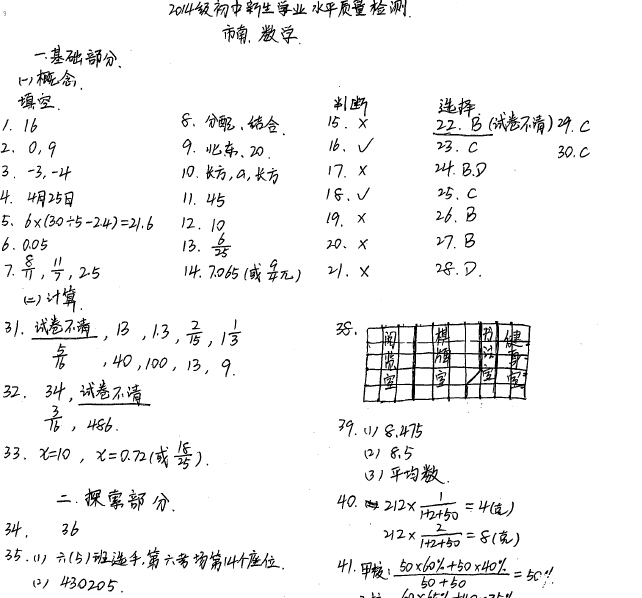 2014级初中新生学业水平质量检测.
市南.数学.
一.基础部分.
(一)概念.
填空.
1. 16
2. 0,9
3. -3,-4
4. 4月25日
5. 6×(30÷5-2.4)=21.6
6. 0.05
7. 8/11, 11/7, 2.5
8. 分配、结合.
9. 北东、20.
10. 长方,a,长方
11. 45
12. 10
13. 6/25
14. 7.065(或 9/4π)
判断
15. ×
16. ✓
17. ×
18. ✓
19. ×
20. ×
21. ×
选择
22. B (试卷不清)
23. C
24. B.D
25. C
26. B
27. B
28. D.
29. C
30. C
(二)计算.
31. 试卷不清, 13, 1.3, 2/15, 1 1/3
5/16, 40, 100, 13, 9.
32. 34, 试卷不清
3/16, 486.
33. x=10, x=0.72(或 18/25).
二.探索部分.
34. 36
35. (1) 六(5)班选手,第六考场第14个座位.
(2) 430205.
38.
阅览室
棋牌室
书法室
健身室
39. (1) 8.475
(2) 8.5
(3) 平均数.
40. 212× 1/(1+2+50) =4(克)
212× 2/(1+2+50) =8(克)
41. 甲校: (50×60%+50×40%)/(50+50) =50%